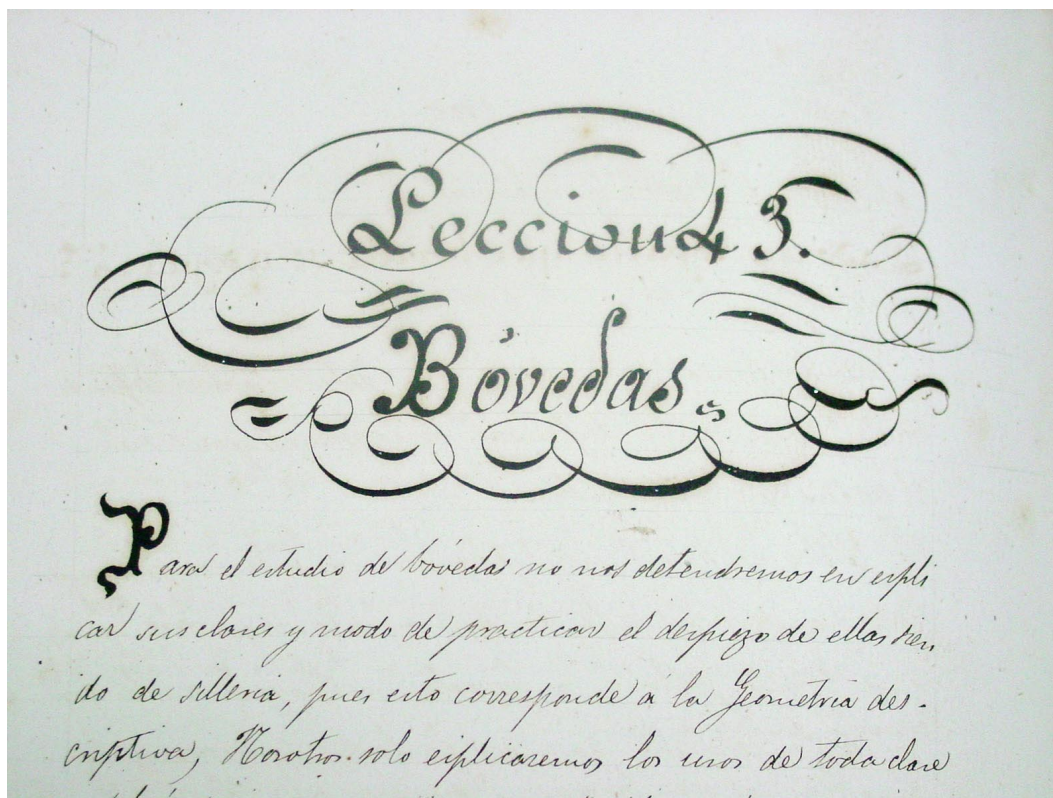 Leccion 43.
Bóvedas
Para el estudio de bóvedas no nos detendremos en espli
car sus clases y modo de practicar el despiezo de ellas sien
do de silleria, pues esto corresponde á la Geometria des-
criptiva, Nosotros solo esplicaremos los usos de toda clase